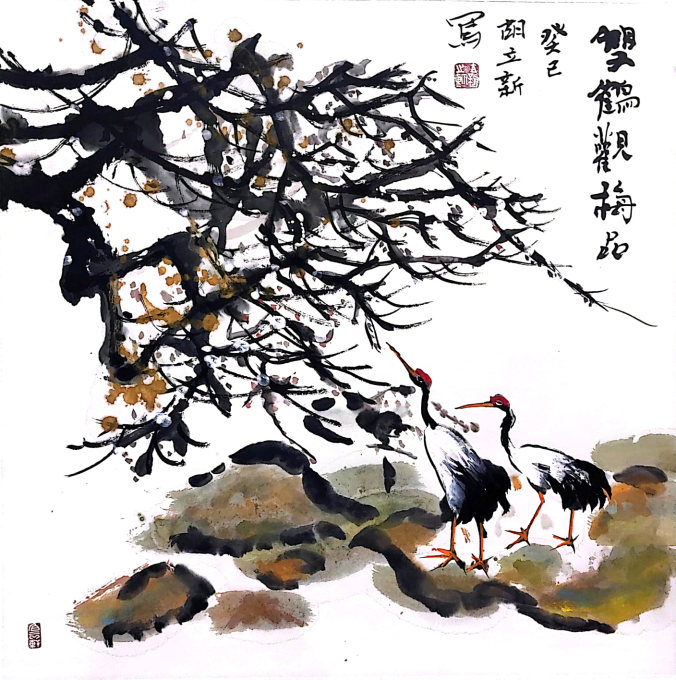 雙鶴觀梅圖
癸巳
胡立新
寫